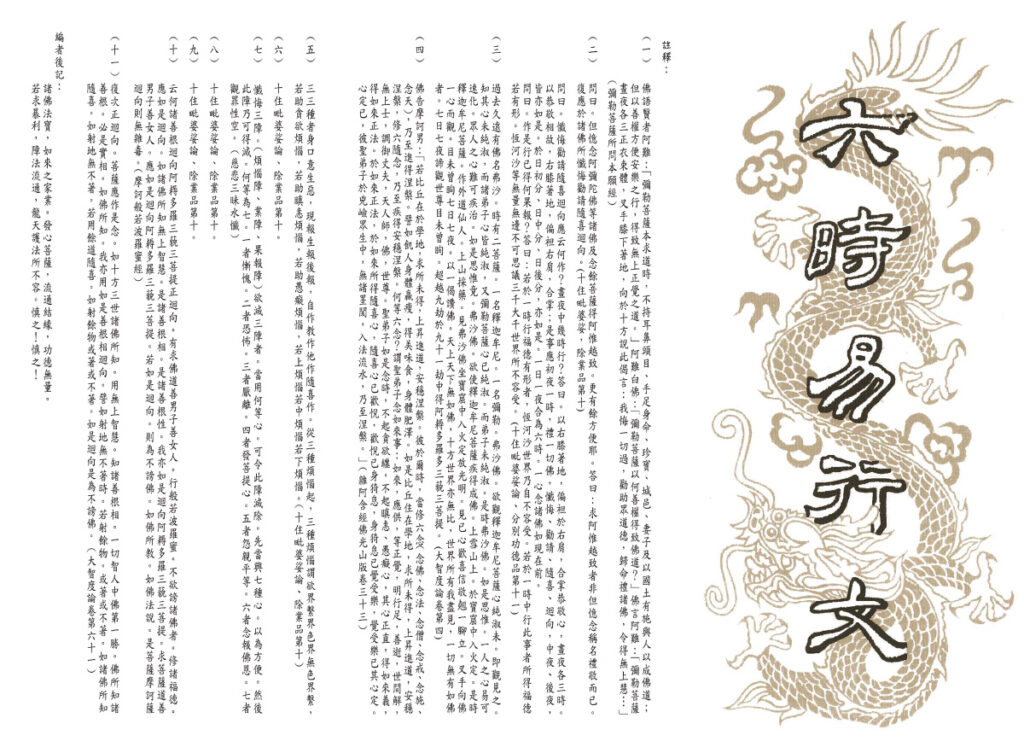 六時易行文
註釋：
（一）佛語賢者阿難：「彌勒菩薩本求道時，不持耳鼻頭目、手足身命、珍寶、城邑、妻子及以國土布施與人以成佛道；
但以善權方便安樂之行，得致無上正覺之道。」阿難白佛：「彌勒菩薩以何善權得致佛道？」佛言阿難：「彌勒菩薩
晝夜各三正衣束體，叉手膝下著地，向於十方說此偈言：我悔一切過，勸助眾道德，歸命禮諸佛，令得無上慧…」
（彌勒菩薩所問本願經）
（二）問曰：但憶念阿彌陀佛等諸佛及念餘菩薩得阿惟越致。更有餘方便耶。答曰：求阿惟越致者非但憶念稱名禮敬而已。
復應於諸佛所懺悔勸請隨喜迴向。（十住毗婆娑，除業品第十）
問曰。懺悔勸請隨喜迴向應云何作？晝夜中幾時行？答曰。以右膝著地，偏袒於右肩，合掌恭敬心，晝夜各三時。
以恭敬相故，右膝著地，偏袒右肩，合掌；是事應初夜一時，禮一切佛，懺悔、勸請、隨喜、迴向，中夜、後夜，
皆亦如是。於日初分、日中分、日後分，亦如是。一日一夜合為六時。一心念諸佛如現在前。
問曰。作是行已得何果報？答曰：若於一時行福德有形者，恆河沙等世界乃自不容受。若於一時中行此事者所得福德
若有形。恆河沙等無量無邊不可思議三千大千世界所不容受。（十住毗婆娑論、分別功德品第十一）
（三）過去久遠有佛名弗沙。時有二菩薩。一名釋迦牟尼。一名彌勒。弗沙佛。欲觀釋迦牟尼菩薩心純淑未。即觀見之。
知其心未純淑。而諸弟子心皆純淑，又彌勒菩薩心已純淑。而弟子未純淑。是時弗沙佛。如是思惟。一人之心易可
速化。眾人之心難可疾治。如是思惟竟。弗沙佛。欲使釋迦牟尼菩薩疾得成佛。上雪山上。於寶窟中入火定。是時
釋迦牟尼菩薩。作外道仙人。上山採藥。見弗沙佛坐寶窟中入火定放光明。見已心歡喜信敬翹一腳立。叉手向佛
一心而觀。目未曾眴七日七夜。以一偈讚佛。天上天下無如佛，十方世界亦無比，世界所有我盡見，一切無有如佛
者。七日七夜諦觀世尊目未曾眴。超越九劫於九十一劫中得阿耨多羅多三藐三菩提。（大智度論卷第四）
（四）佛告摩訶男：「若比丘在於學地，求所未得，上昇進道，安穩涅槃。彼於爾時，當修六念（念佛、念法、念僧、念戒、念施、
念天），乃至進得涅槃。譬如飢人身體羸瘦，得美味食，身體肥澤。如是比丘住在學地，求所未得，上昇進道，安穩
涅槃，修六隨念，乃至疾得安穩涅槃。何等六念？謂聖弟子念如來事：如來，應供，等正覺，明行足，善逝，世間解，
無上士，調御丈夫，天人師，佛，世尊。聖弟子如是念時，不起貪欲纏，不起瞋恚、愚癡心，其心正直，得如來義，
得如來正法，於如來正法，於如來所得隨喜心，隨喜心已歡悅，歡悅已身猗息，身猗息已覺受樂，覺受樂已其心定。
心定已，彼聖弟子於兇嶮眾生中，無諸罣閡，入法流水，乃至涅槃。」（雜阿含經佛光山版卷三十三）
（五）三三種者身口意生惡，現報生報後報，自作教作他作隨喜作。從三種煩惱起，三種煩惱謂欲界繫界色界無色界繫，
若助貪欲煩惱若助瞋恚煩惱，若助愚癡煩惱，若上煩惱若中煩惱若下煩惱。（十住毗婆娑論、除業品第十）
（六）十住毗婆娑論、除業品第十。
（七）懺悔三障。（煩惱障、業障、果報障）欲滅三障者。當用何等心，可令此障滅除。先當興七種心，以為方便。然後
此障乃可得滅。何等為七。一者慚愧。二者恐怖。三者厭離。四者發菩提心。五者怨親平等。六者念報佛恩。七者
觀罪性空。（慈悲三昧水懺）
（八）十住毗婆娑論、除業品第十。
（九）十住毗婆娑論、除業品第十。
（十）云何諸善根迴向阿耨多羅三藐三菩提正迴向。有求佛道善男子善女人。行般若波羅蜜。不欲謗諸佛者。修諸福德。
應如是迴向。如諸佛所知無上智慧。是諸善根相。是諸善根性。我亦如是迴向阿耨多羅三藐三菩提。求菩薩道善
男子善女人。應如是迴向阿耨多羅三藐三菩提。若如是迴向。則為不謗佛。如佛所教。如佛法說。是菩薩摩訶薩
迴向則無雜毒。（摩訶般若波羅蜜經）
（十一）復次正迴向。菩薩應作是念。如十方三世諸佛所知。用無上智慧。知諸善根相。一切智人中佛第一勝。佛所知諸
善根。必是實相。如佛所知。我亦用如是善根相迴向。譬如射地無不著時。若射餘物。或著或不著。如諸佛所知
隨喜。如射地無不著。若用餘道隨喜。如射餘物或著或不著。如是迴向是為不謗佛。（大智度論卷第六十一）
編者後記：
諸佛法寶，如來之家業。發心菩薩，流通結緣，功德無量。
若求暴利，障法流通，龍天護法所不容。慎之！慎之！